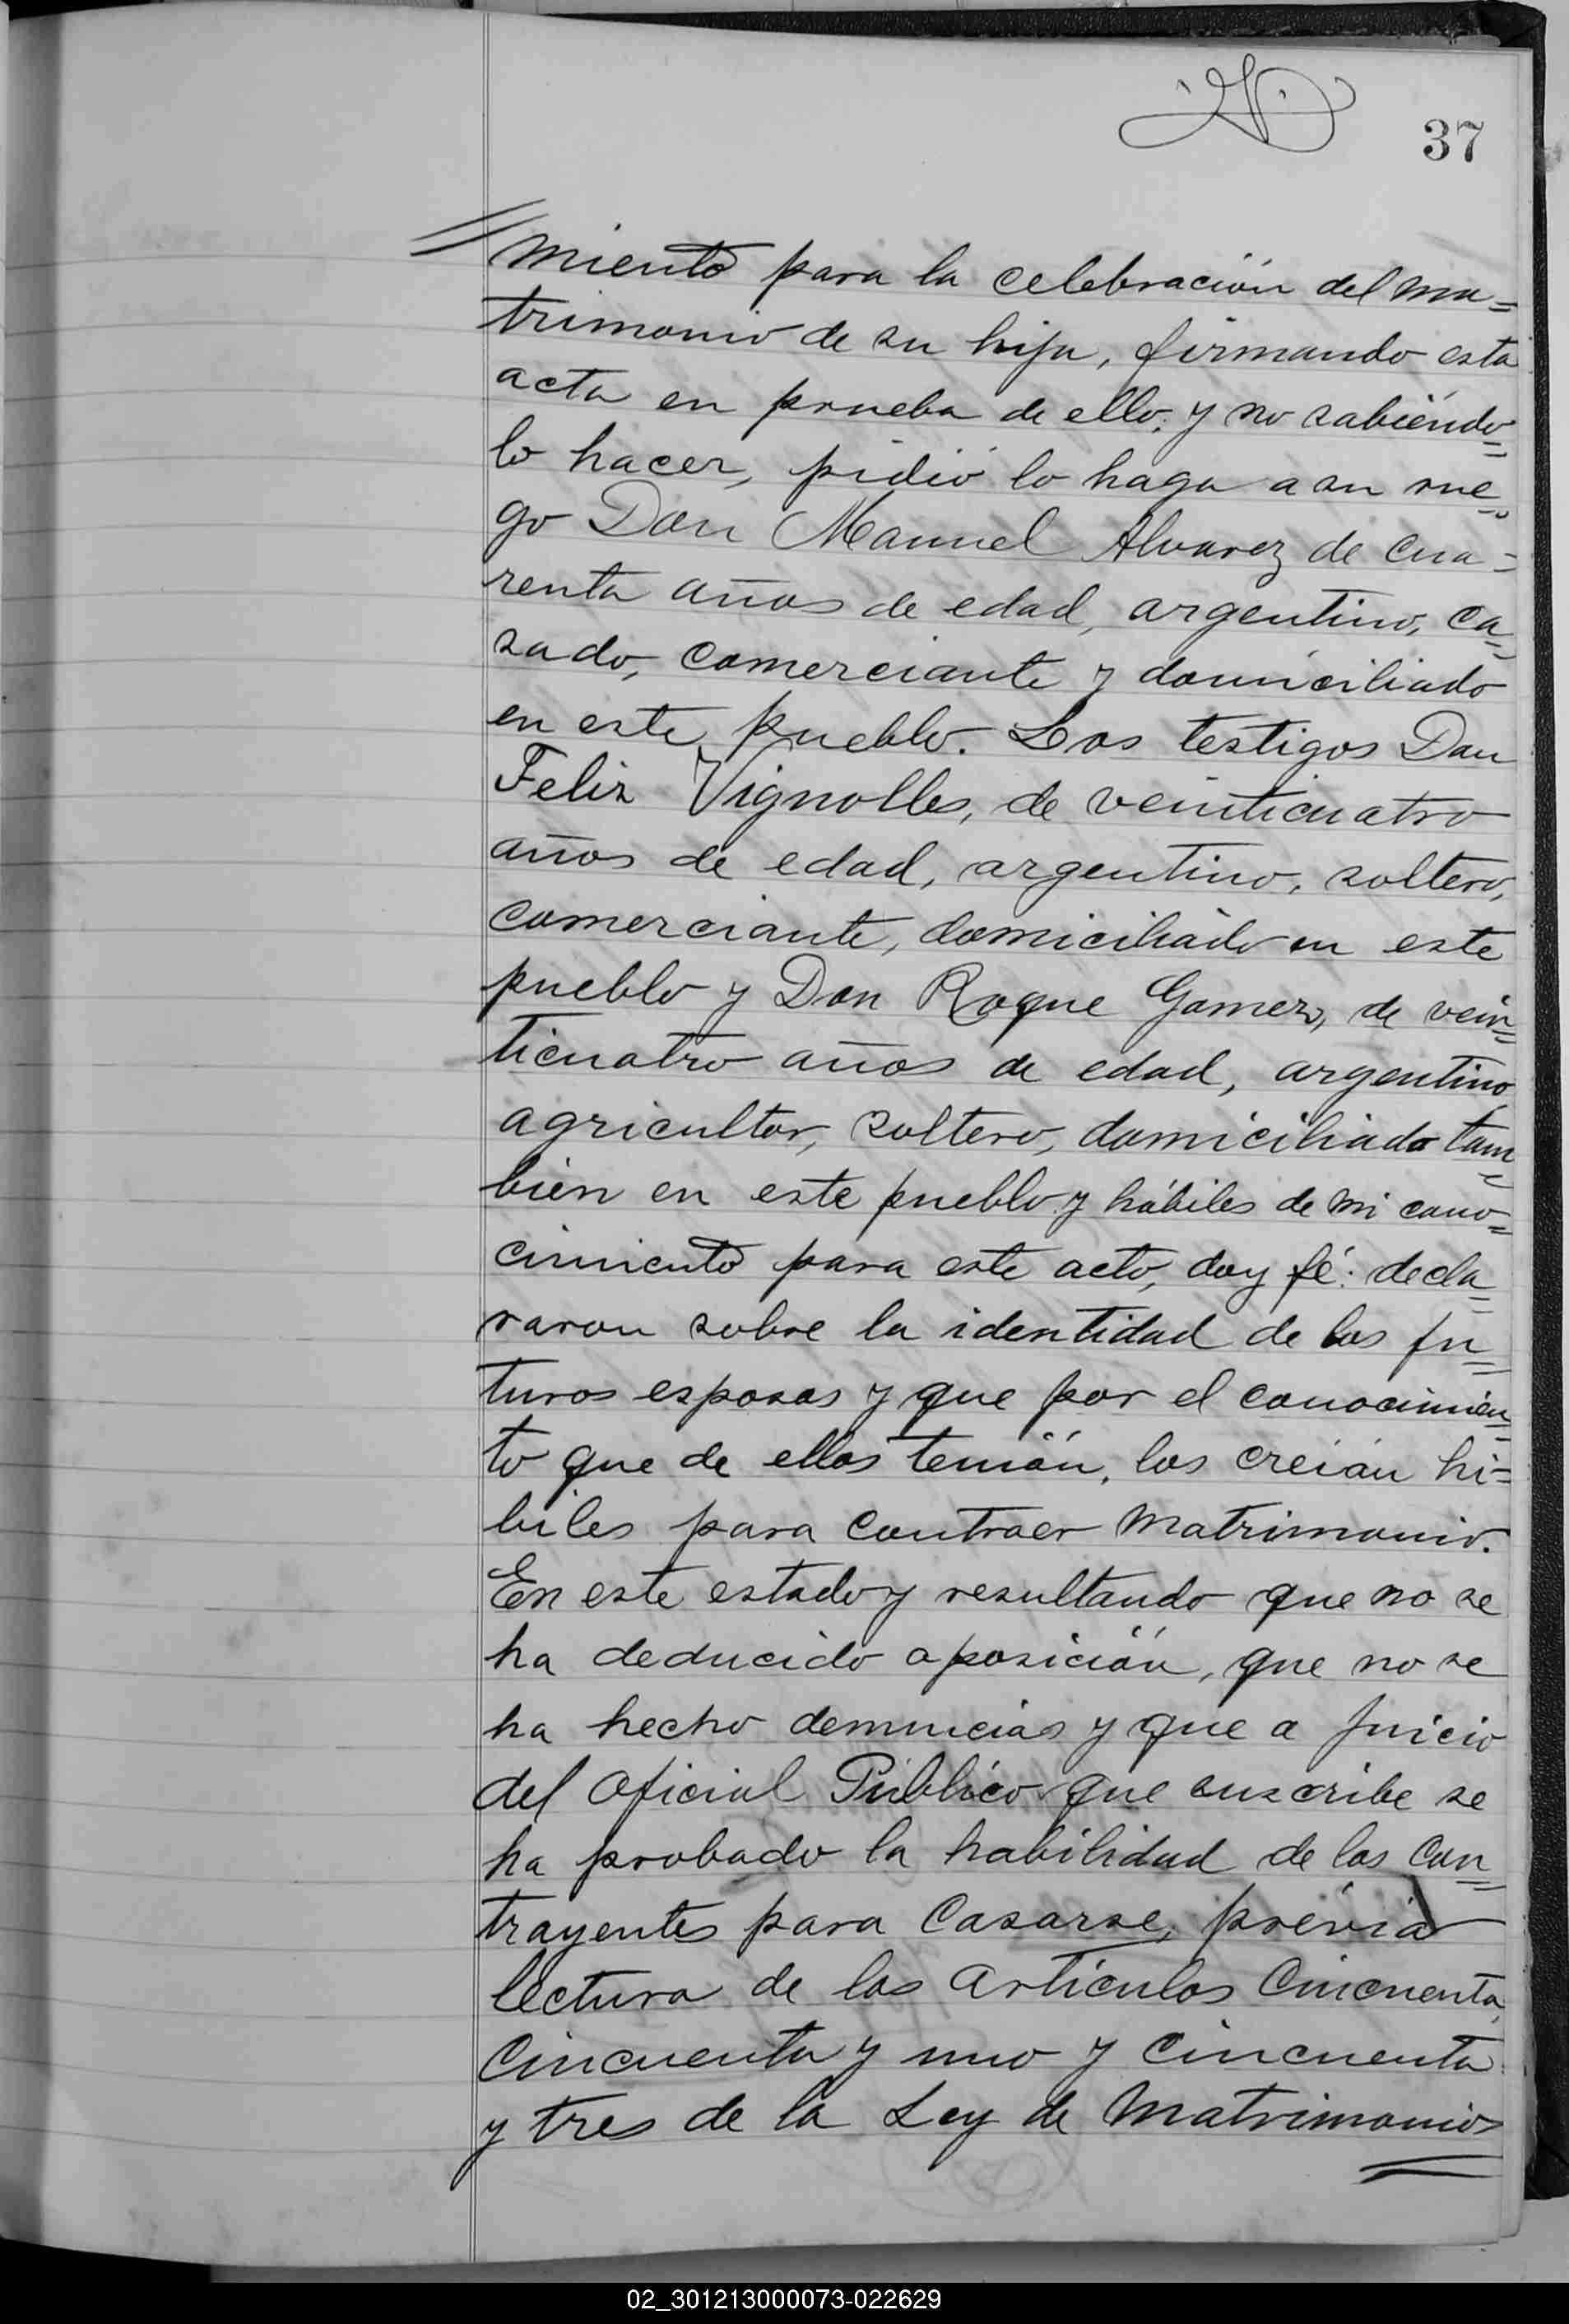 37
miento para la celebración del ma=
trimonio de su hija, firmando esta
acta en prueba de ello; y no sabiendo=
lo hacer, pidió lo haga a su rue=
go Don Manuel Alvarez de cua=
renta años de edad, argentino, ca=
sado, comerciante y domiciliado
en este pueblo. Los testigos Don
Felix Vignolles, de veinticuatro
años de edad, argentino, soltero,
comerciante, domiciliado en este
pueblo y Don Roque Gomez, de vein=
ticuatro años de edad, argentino,
agricultor, soltero, domiciliado tam=
bien en este pueblo y hábiles de mi cono=
cimiento para este acto, doy fé: decla=
raron sobre la identidad de los fu=
turos esposos y que por el conocimien=
to que de ellos tenían, los creían há=
biles para contraer matrimonio.
En este estado y resultando que no se
ha deducido oposición, que no se
ha hecho denuncias y que a juicio
del Oficial Público que suscribe se
ha probado la habilidad de los con=
trayentes para casarse, prévia
lectura de los artículos cincuenta,
cincuenta y uno y cincuenta
y tres de la Ley de Matrimonio
02_301213000073-022629